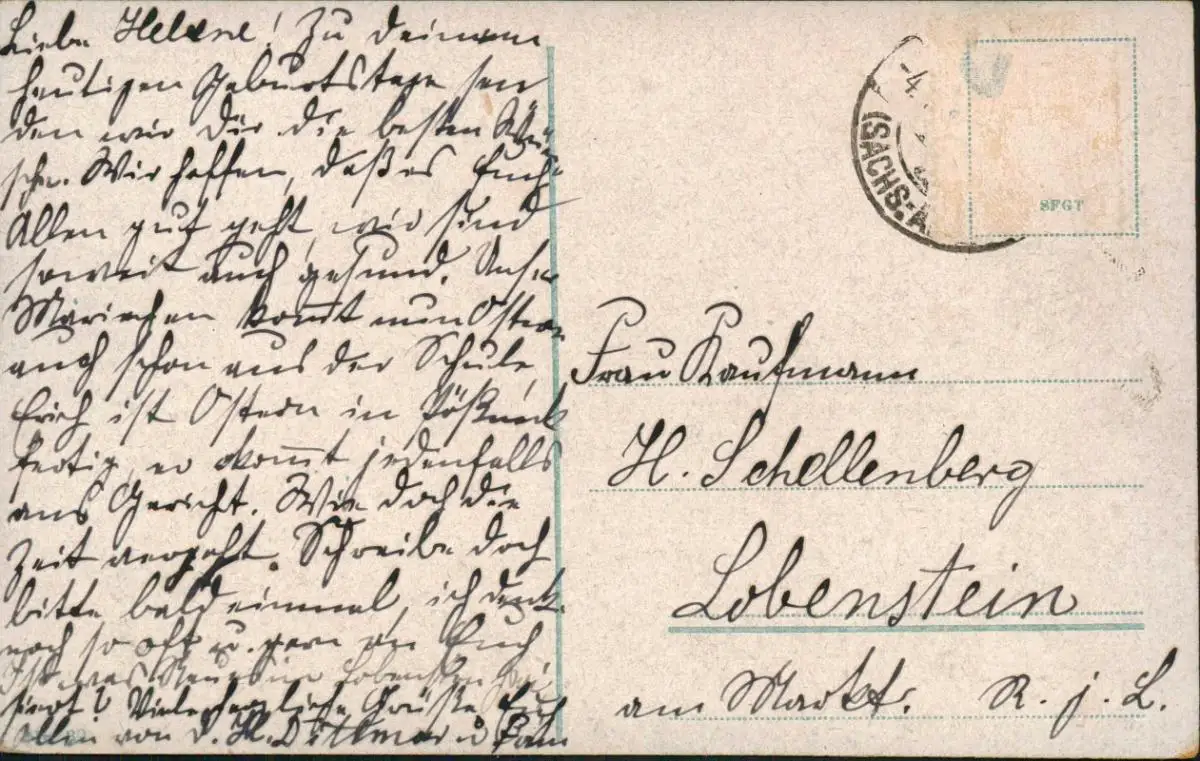 Liebe Helene! Zu deinem
heutigen Geburtstage sen
den wir Dir die besten Wün
sche. Wir hoffen, daß es Euch
Allen gut geht, wir sind
soweit auch gesund. Unser
Mariechen kommt nun Ostern
auch schon aus der Schule,
Erich ist Ostern in Pößneck
fertig, er kommt jedenfalls
ans Gericht. Wie doch die
Zeit vergeht. Schreibe doch
bitte bald einmal, ich denke
noch so oft u. gern an Euch
Ist was Neues in Lobenstein pas
siert? Viele herzliche Grüße Euch
Allen von d. H. Dittmar u Fam
-4.
(SACHS.-A
SFGT
Frau Kaufmann
H. Schellenberg
Lobenstein
am Markt. R. j. L.